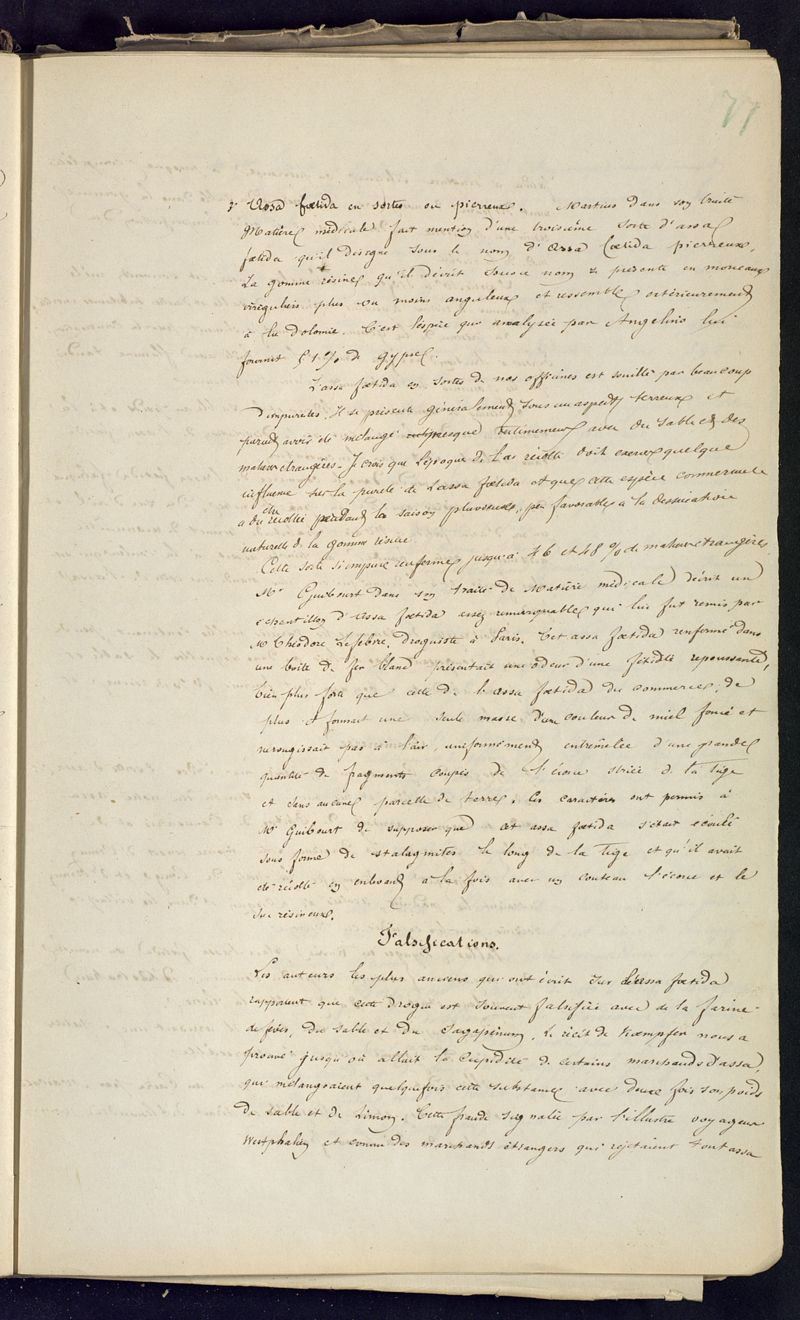 77
3° Assa fœtida en sortes ou pierreux. Martius dans son traité
Matière médicale fait mention d'une troisième sorte d'assa
fœtida qu'il désigne sous le nom d'assa fœtida pierreux.
La gomme résine qu'il décrit sous ce nom se présente en morceaux
irréguliers plus ou moins anguleux et ressemble extérieurement
à la dolomie. C'est l'espèce que analysée par Angelino lui
fournit 51 % de gypse.
L'assa fœtida en sortes de nos officines est souillé par beaucoup
d'impuretés. Il se présente généralement sous un aspect terreux et
parait avoir été mélangé presque intimement avec du sable et des
matières étrangères. Je crois que l'époque de la récolte doit exercer quelque
influence sur la pureté de l'assa fœtida et que cette espèce commerciale
a été récoltée pendant la saison pluvieuse, peu favorable à la dessication
naturelle de la gomme résine
Cette sorte si impure renferme jusqu'à 46 et 48 % de matières étrangères
Mr Guibourt dans son traité de Matière médicale décrit un
échantillon d'assa fœtida assez remarquable qui lui fut remis par
Mr Théodore Lefebvre, droguiste à Paris. Cet assa fœtida renfermé dans
une boîte de fer blanc présentait une odeur d'une fétidité repoussante,
bien plus forte que celle de l'assa fœtida du commerce; de
plus il formait une seule masse d'une couleur de miel foncé et
ne rougissait pas à l'air, uniformément entremêlée d'une grande
quantité de fragments coupés de l'écorce striée de la tige
et sans aucune parcelle de terre. Ces caractères ont permis à
Mr Guibourt de supposer que cet assa fœtida s'était écoulé
sous forme de stalagmites le long de la tige et qu'il avait
été récolté en enlevant à la fois avec un couteau l'écorce et le
suc résineux.
Falsifications.
Les auteurs les plus anciens qui ont écrit sur l'assa fœtida
rapportent que cette drogue est souvent falsifiée avec de la farine
de fèves, du sable et du sagapénum. Le récit de Kœmpfer nous a
prouvé jusqu'où allait la cupidité de certains marchands d'assa,
qui mélangeaient quelquefois cette substance avec deux fois son poids
de sable et de limon. Cette fraude signalée par l'illustre voyageur
Westphalien et connu des marchands étrangers qui rejetaient tout assa